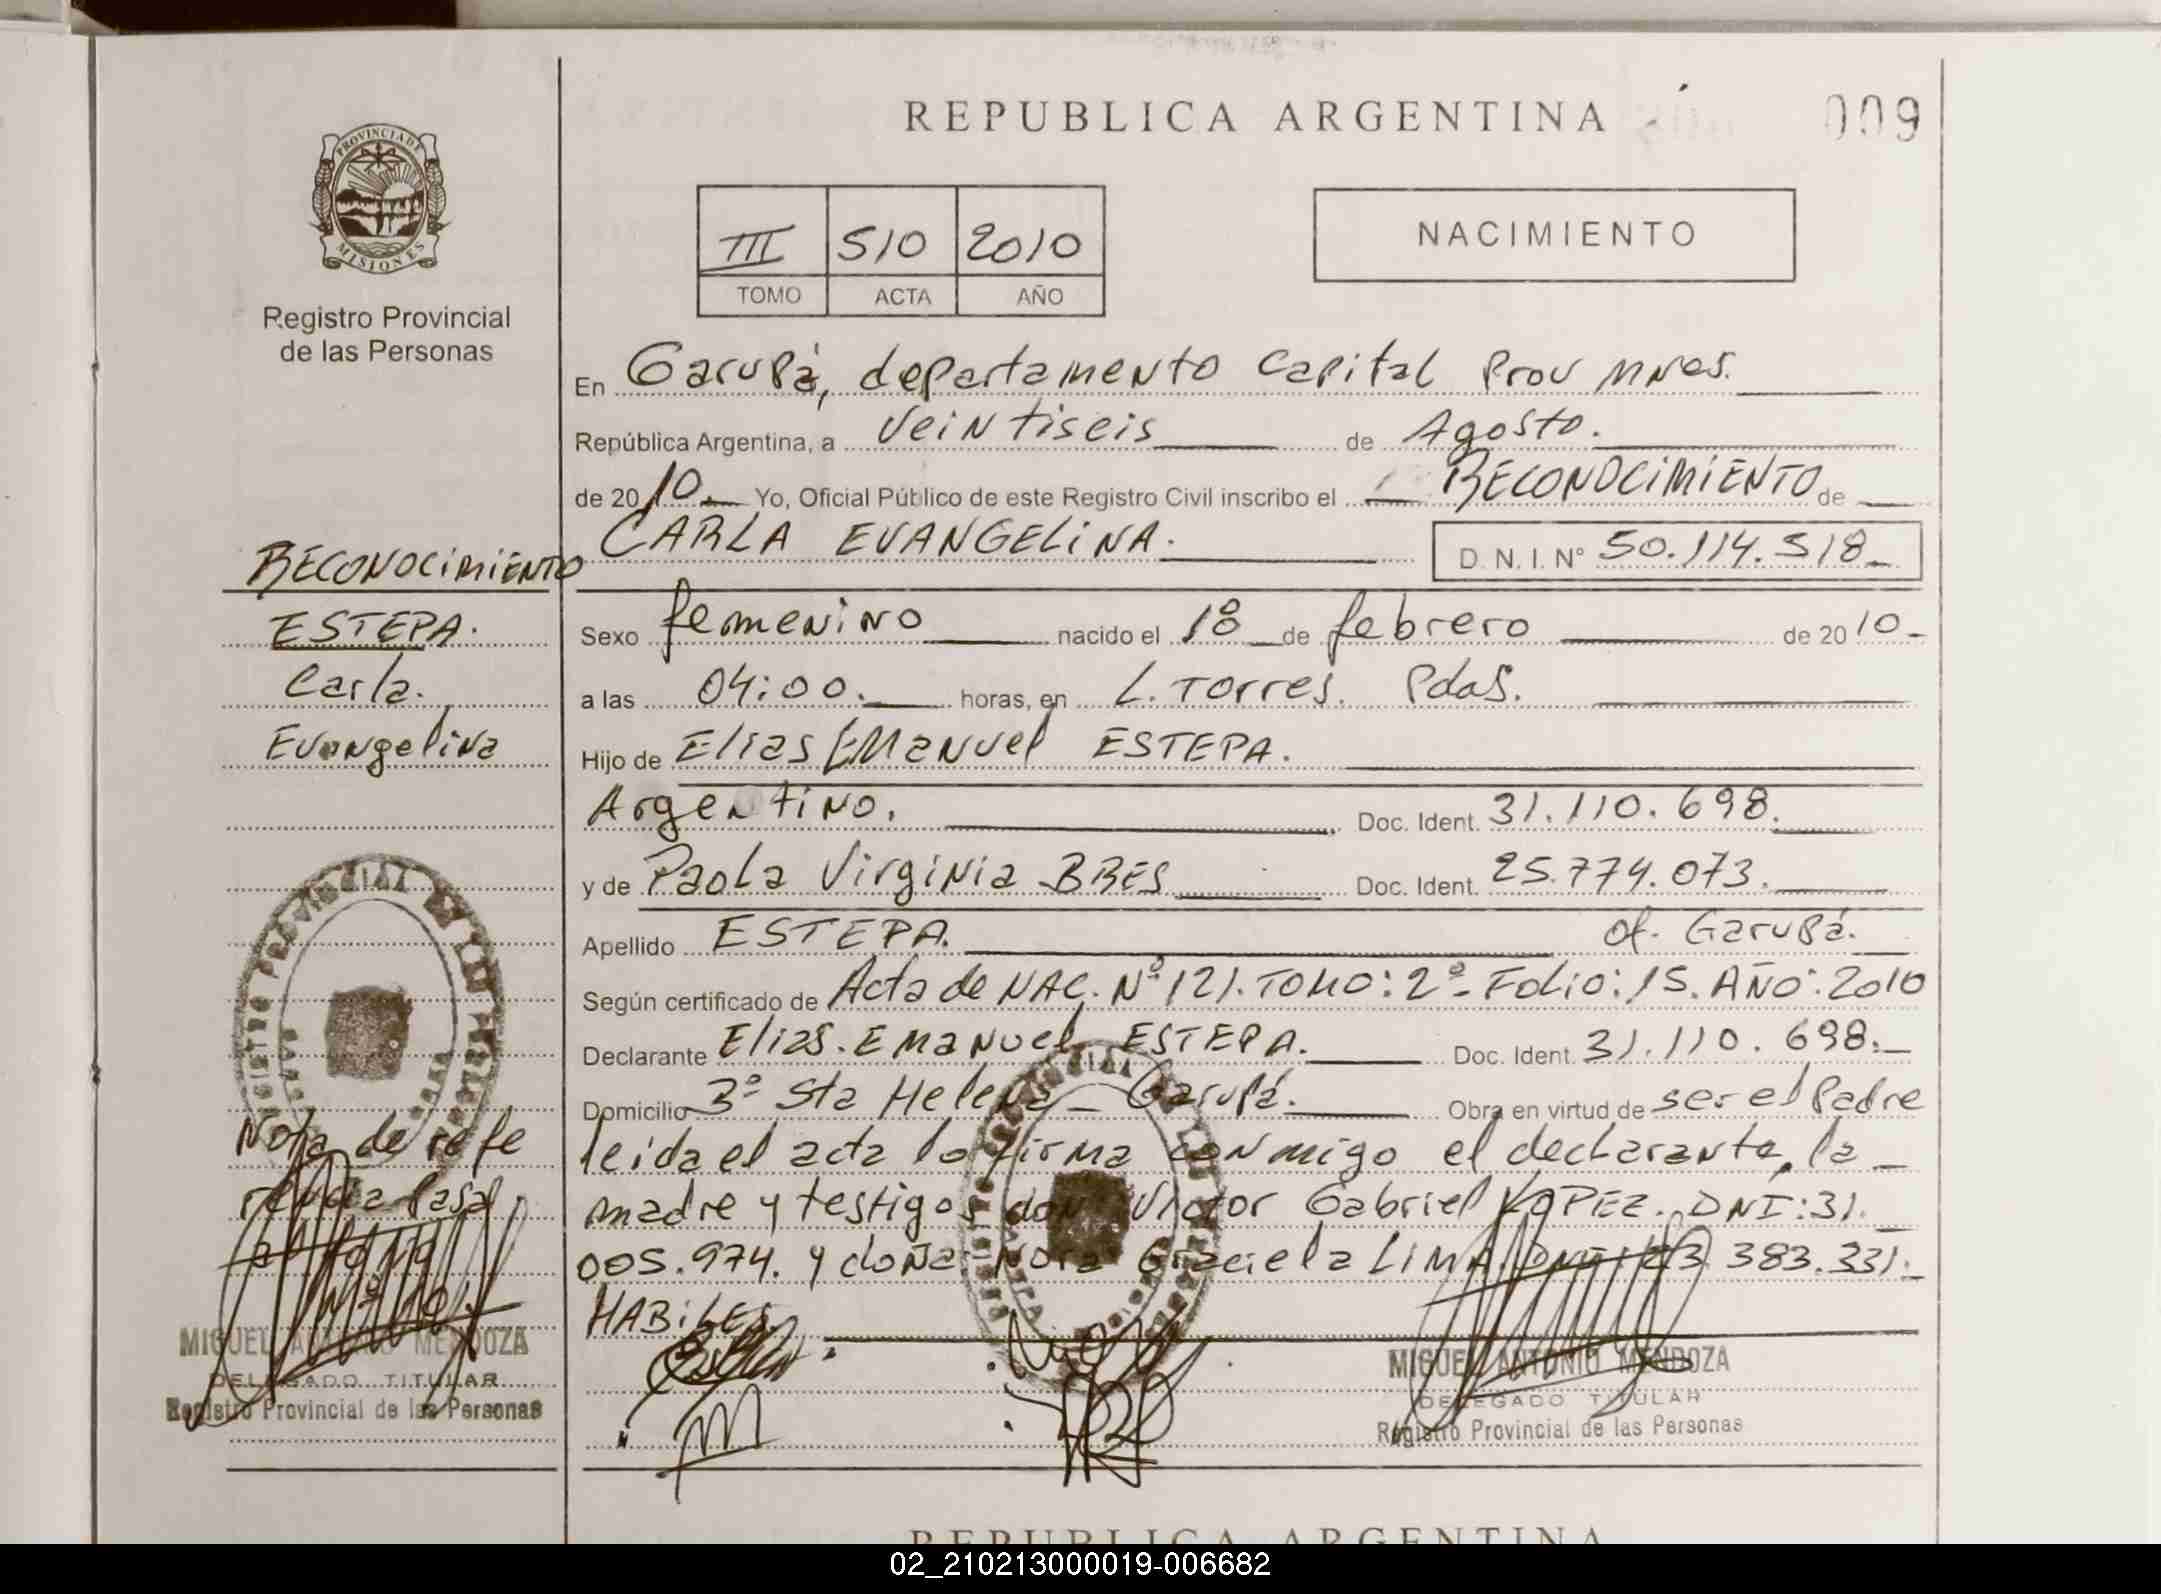 REPUBLICA ARGENTINA
009
PROVINCIA DE MISIONES
Registro Provincial
de las Personas
III 510 2010
TOMO ACTA AÑO
NACIMIENTO
En Garupá, departamento Capital Prov Mnes.
República Argentina, a veintiseis de Agosto.
de 2010. Yo, Oficial Público de este Registro Civil inscribo el RECONOCIMIENTO de
CARLA EVANGELINA. D. N. I. Nº 50.114.518
Sexo femenino nacido el 18 de febrero de 2010
a las 04:00. horas, en L. Torres. Pdas.
Hijo de Elias Emanuel ESTEPA.
Argentino. Doc. Ident. 31.110.698.
y de Paola Virginia BRES Doc. Ident. 25.774.073.
Apellido ESTEPA. of. Garupá.
Según certificado de Acta de NAC. Nº 121. TOMO: 2º- Folio: 15. AÑO: 2010
Declarante Elias. Emanuel ESTEPA. Doc. Ident. 31.110.698.
Domicilio 3º Sta Helena - Garupá. Obra en virtud de ser el Padre
leida el acta la firma conmigo el declarante, la
madre y testigos don Victor Gabriel LOPEZ. DNI: 31.
005.974. y doña Nora Graciela LIMA. DNI: 23.383.331.
HABILES
RECONOCIMIENTO
ESTEPA.
Carla.
Evangelina
Nota de refe
rencia Pasa
al folio
Nº 101.
MIGUEL ANTONIO MENDOZA
DELEGADO TITULAR
Registro Provincial de las Personas
MIGUEL ANTONIO MENDOZA
DELEGADO TITULAR
Registro Provincial de las Personas
REPUBLICA ARGENTINA
02_210213000019-006682